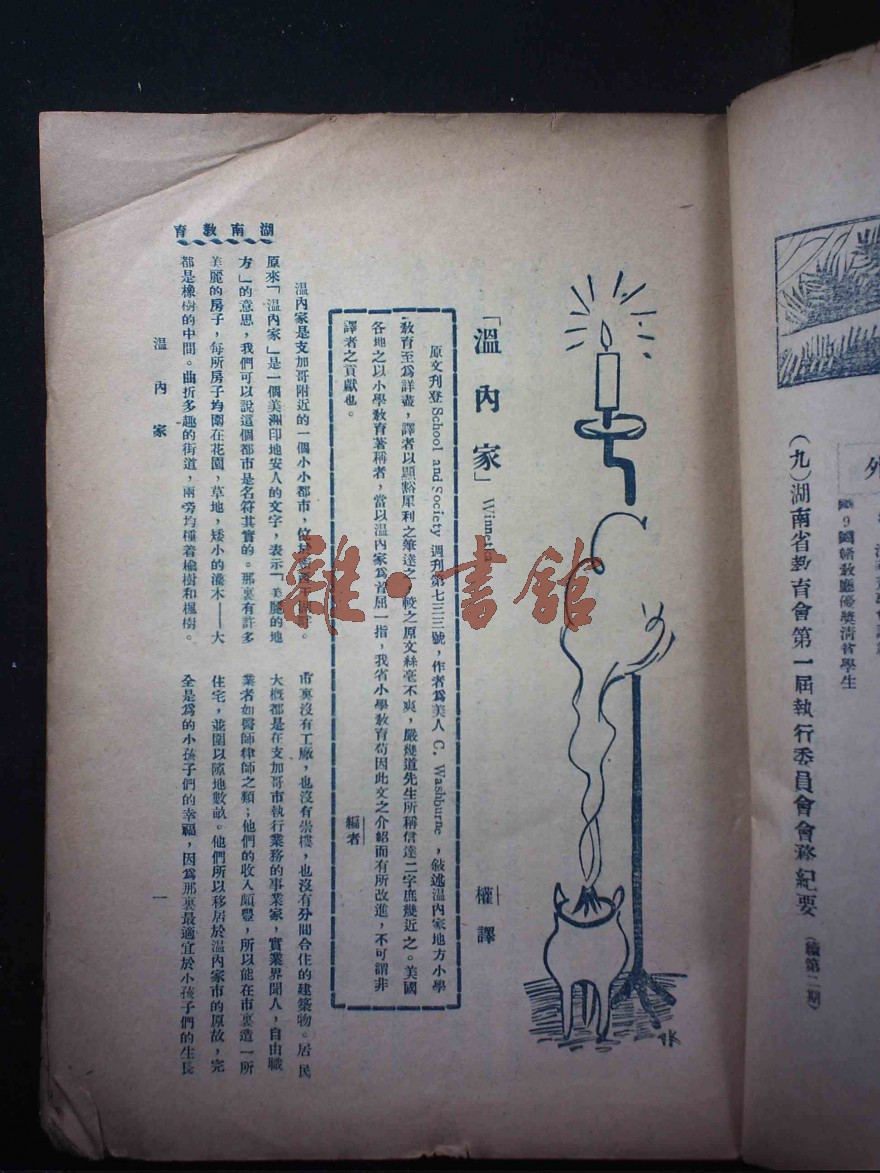 湖南教育
「溫內家」
Winnetka
權譯
原文刊登School and Society 週刊第七三三號，作者爲美人 C. Washburne，敍述溫內家地方小學
教育至爲詳盡，譯者以顯豁犀利之筆達之，較之原文絲毫不爽，嚴幾道先生所稱信達二字庶幾近之。美國
各地之以小學教育著稱者，當以溫內家爲首屈一指，我省小學教育苟因此文之介紹而有所改進，不可謂非
譯者之貢獻也。
編者
溫內家是支加哥附近的一個小小都市，位於
原來「溫內家」是一個美洲印地安人的文字，表示「美麗的地
方」的意思，我們可以說這個都市是名符其實的。那裏有許多
美麗的房子，每所房子均圍在花園，草地，矮小的灌木——大
都是橡樹的中間。曲折多趣的街道，兩旁均種着榆樹和楓樹。
市裏沒有工廠，也沒有崇樓，也沒有分間合住的建築物。居民
大概都是在支加哥市執行業務的事業家，實業界聞人，自由職
業者如醫師律師之類；他們的收入頗豐，所以能在市裏造一所
住宅，並圍以隙地數畝。他們所以移居於溫內家市的原故，完
全是爲的小孩子們的幸福，因爲那裏最適宜於小孩子們的生長
溫內家
一
TK
雜·書館
（九）湖南省教育會第一屆執行委員會會務紀要
（續第二期）
教廳優獎清貧學生